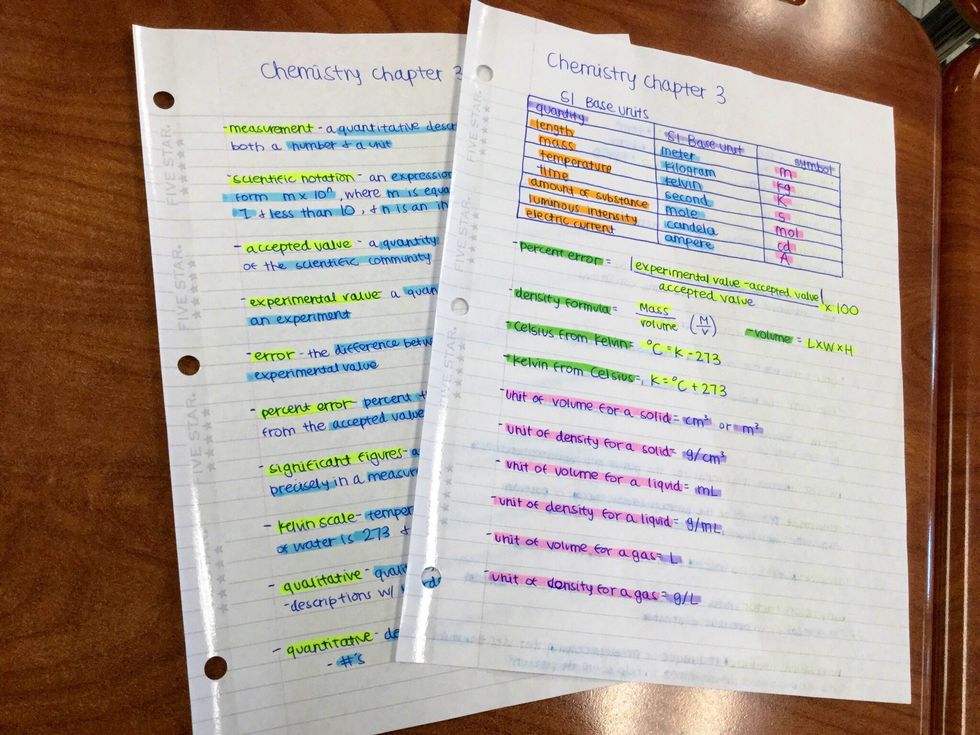 Chemistry chapter 3
-measurement - a quantitative
both a number + a unit
-scientific notation - an expression
form m x 10ⁿ, where m is
1 + less than 10, + n is an
- accepted value - a quantity
of the scientific community
-experimental value a
an experiment
-error - the difference
experimental value
- percent error- percent
from the accepted value
-significant figures-
precisely in a
- kelvin scale-
of water is 273 +
- qualitative -
-descriptions w/
- quantitative-
- #'s
FIVE STAR.
FIVE STAR.
FIVE STAR.
Chemistry chapter 3
SI Base units
quantity SI Base unit symbol
length meter m
mass kilogram kg
temperature kelvin K
time second s
amount of substance mole mol
luminous intensity candela cd
electric current ampere A
-percent error = |experimental value -accepted value| x 100
accepted value
-density formula = Mass (M -volume = LxWxH
volume V)
-Celsius from Kelvin= °C = K - 273
-Kelvin from Celsius= K = °C + 273
-unit of volume for a solid= cm³ or m³
-unit of density for a solid= g/cm³
-unit of volume for a liquid= mL
-unit of density for a liquid= g/mL
-unit of volume for a gas= L
-unit of density for a gas= g/L
FIVE STAR.
FIVE STAR.
FIVE STAR.